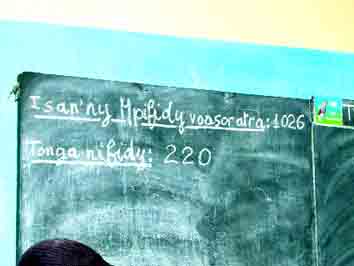 Isan'ny Mpifidy voasoratra: 1026
Tonga nifidy: 220